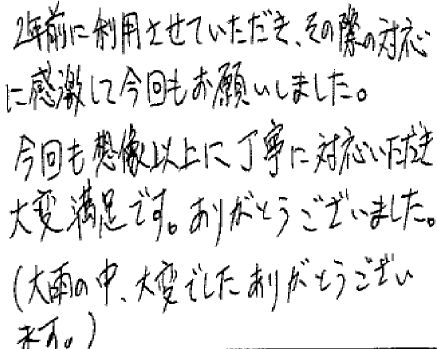 2年前に利用させていただき、その際の対応
に感激して今回もお願いしました。
今回も想像以上に丁寧に対応いただき
大変満足です。ありがとうございました。
(大雨の中、大変でしたありがとうござい
ます。)